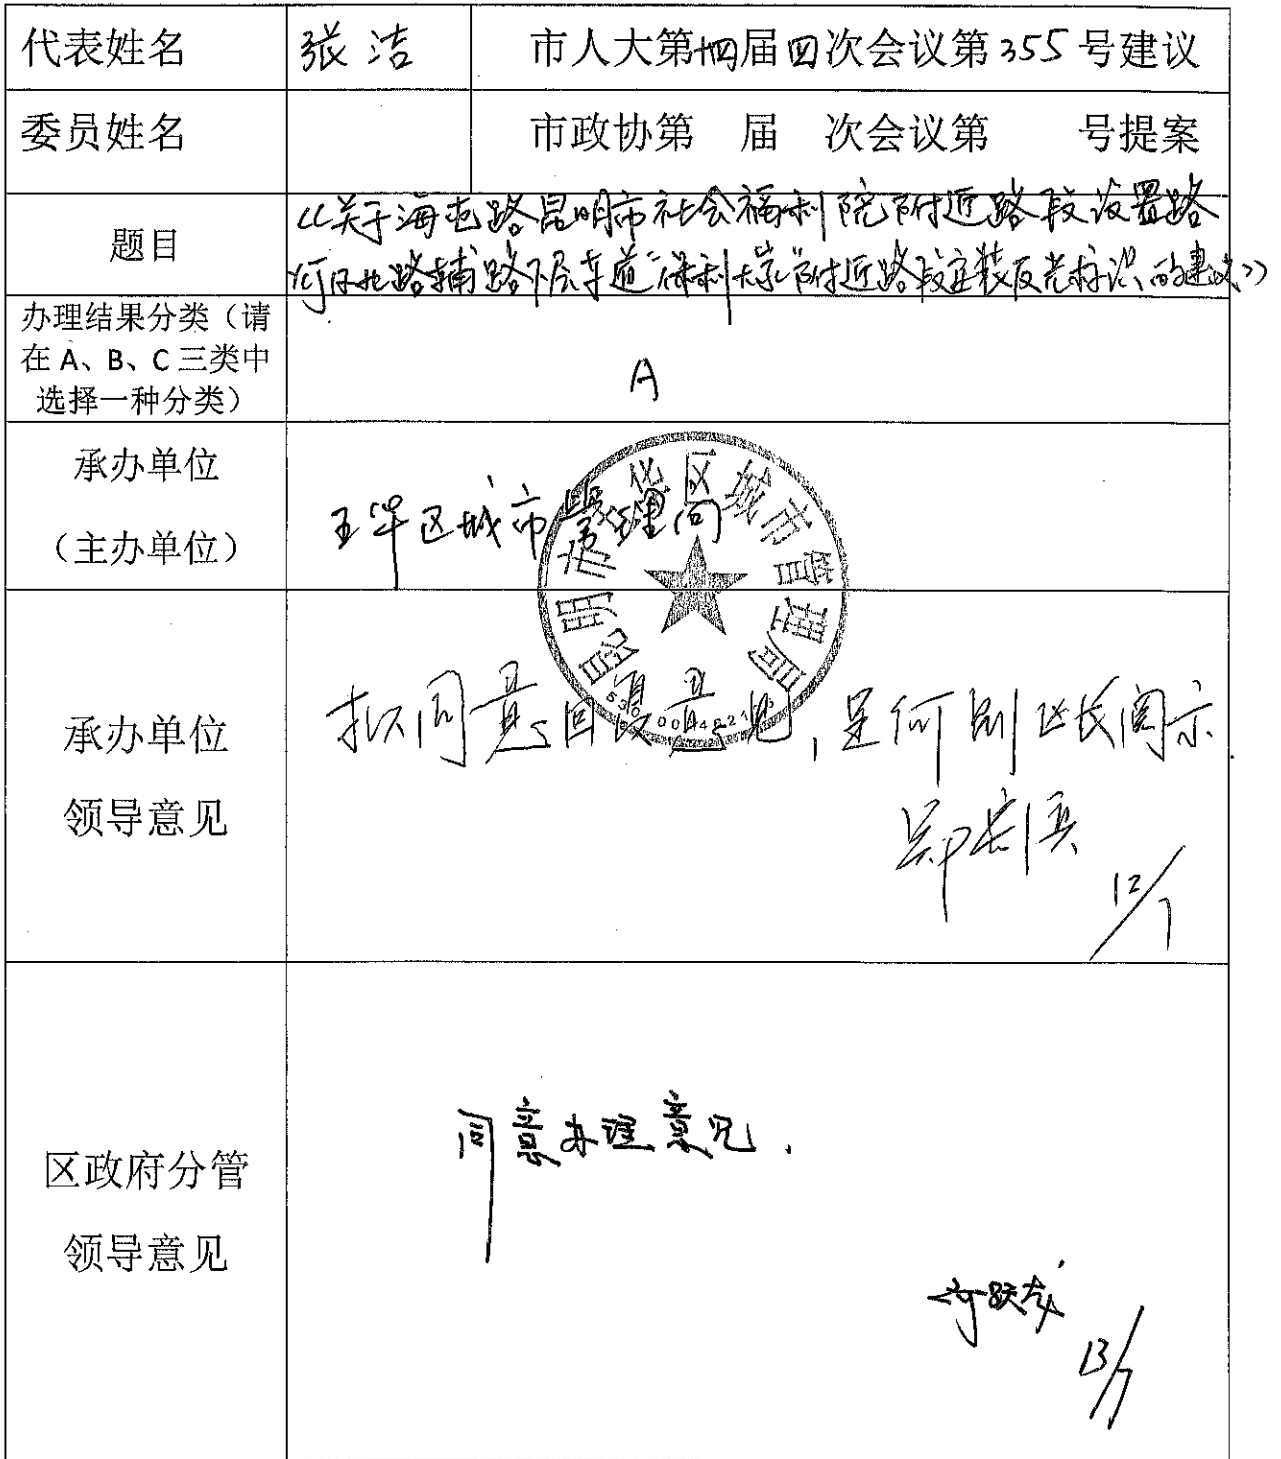 代表姓名 张洁 市人大第十四届四次会议第355号建议
委员姓名 市政协第 届 次会议第 号提案
题目
《关于海屯路昆明市社会福利院附近路段设置路
北路辅路下层车道"保利大家"附近路段安装反光标识的建议》
办理结果分类（请
在A、B、C三类中
选择一种分类）
A
承办单位
（主办单位）
五华区城市管理局
昆明市五华区城市管理局
承办单位
领导意见
拟同意回复意见，呈何副区长阅示.
12/7
区政府分管
领导意见
同意办理意见.
何跃龙
13/7